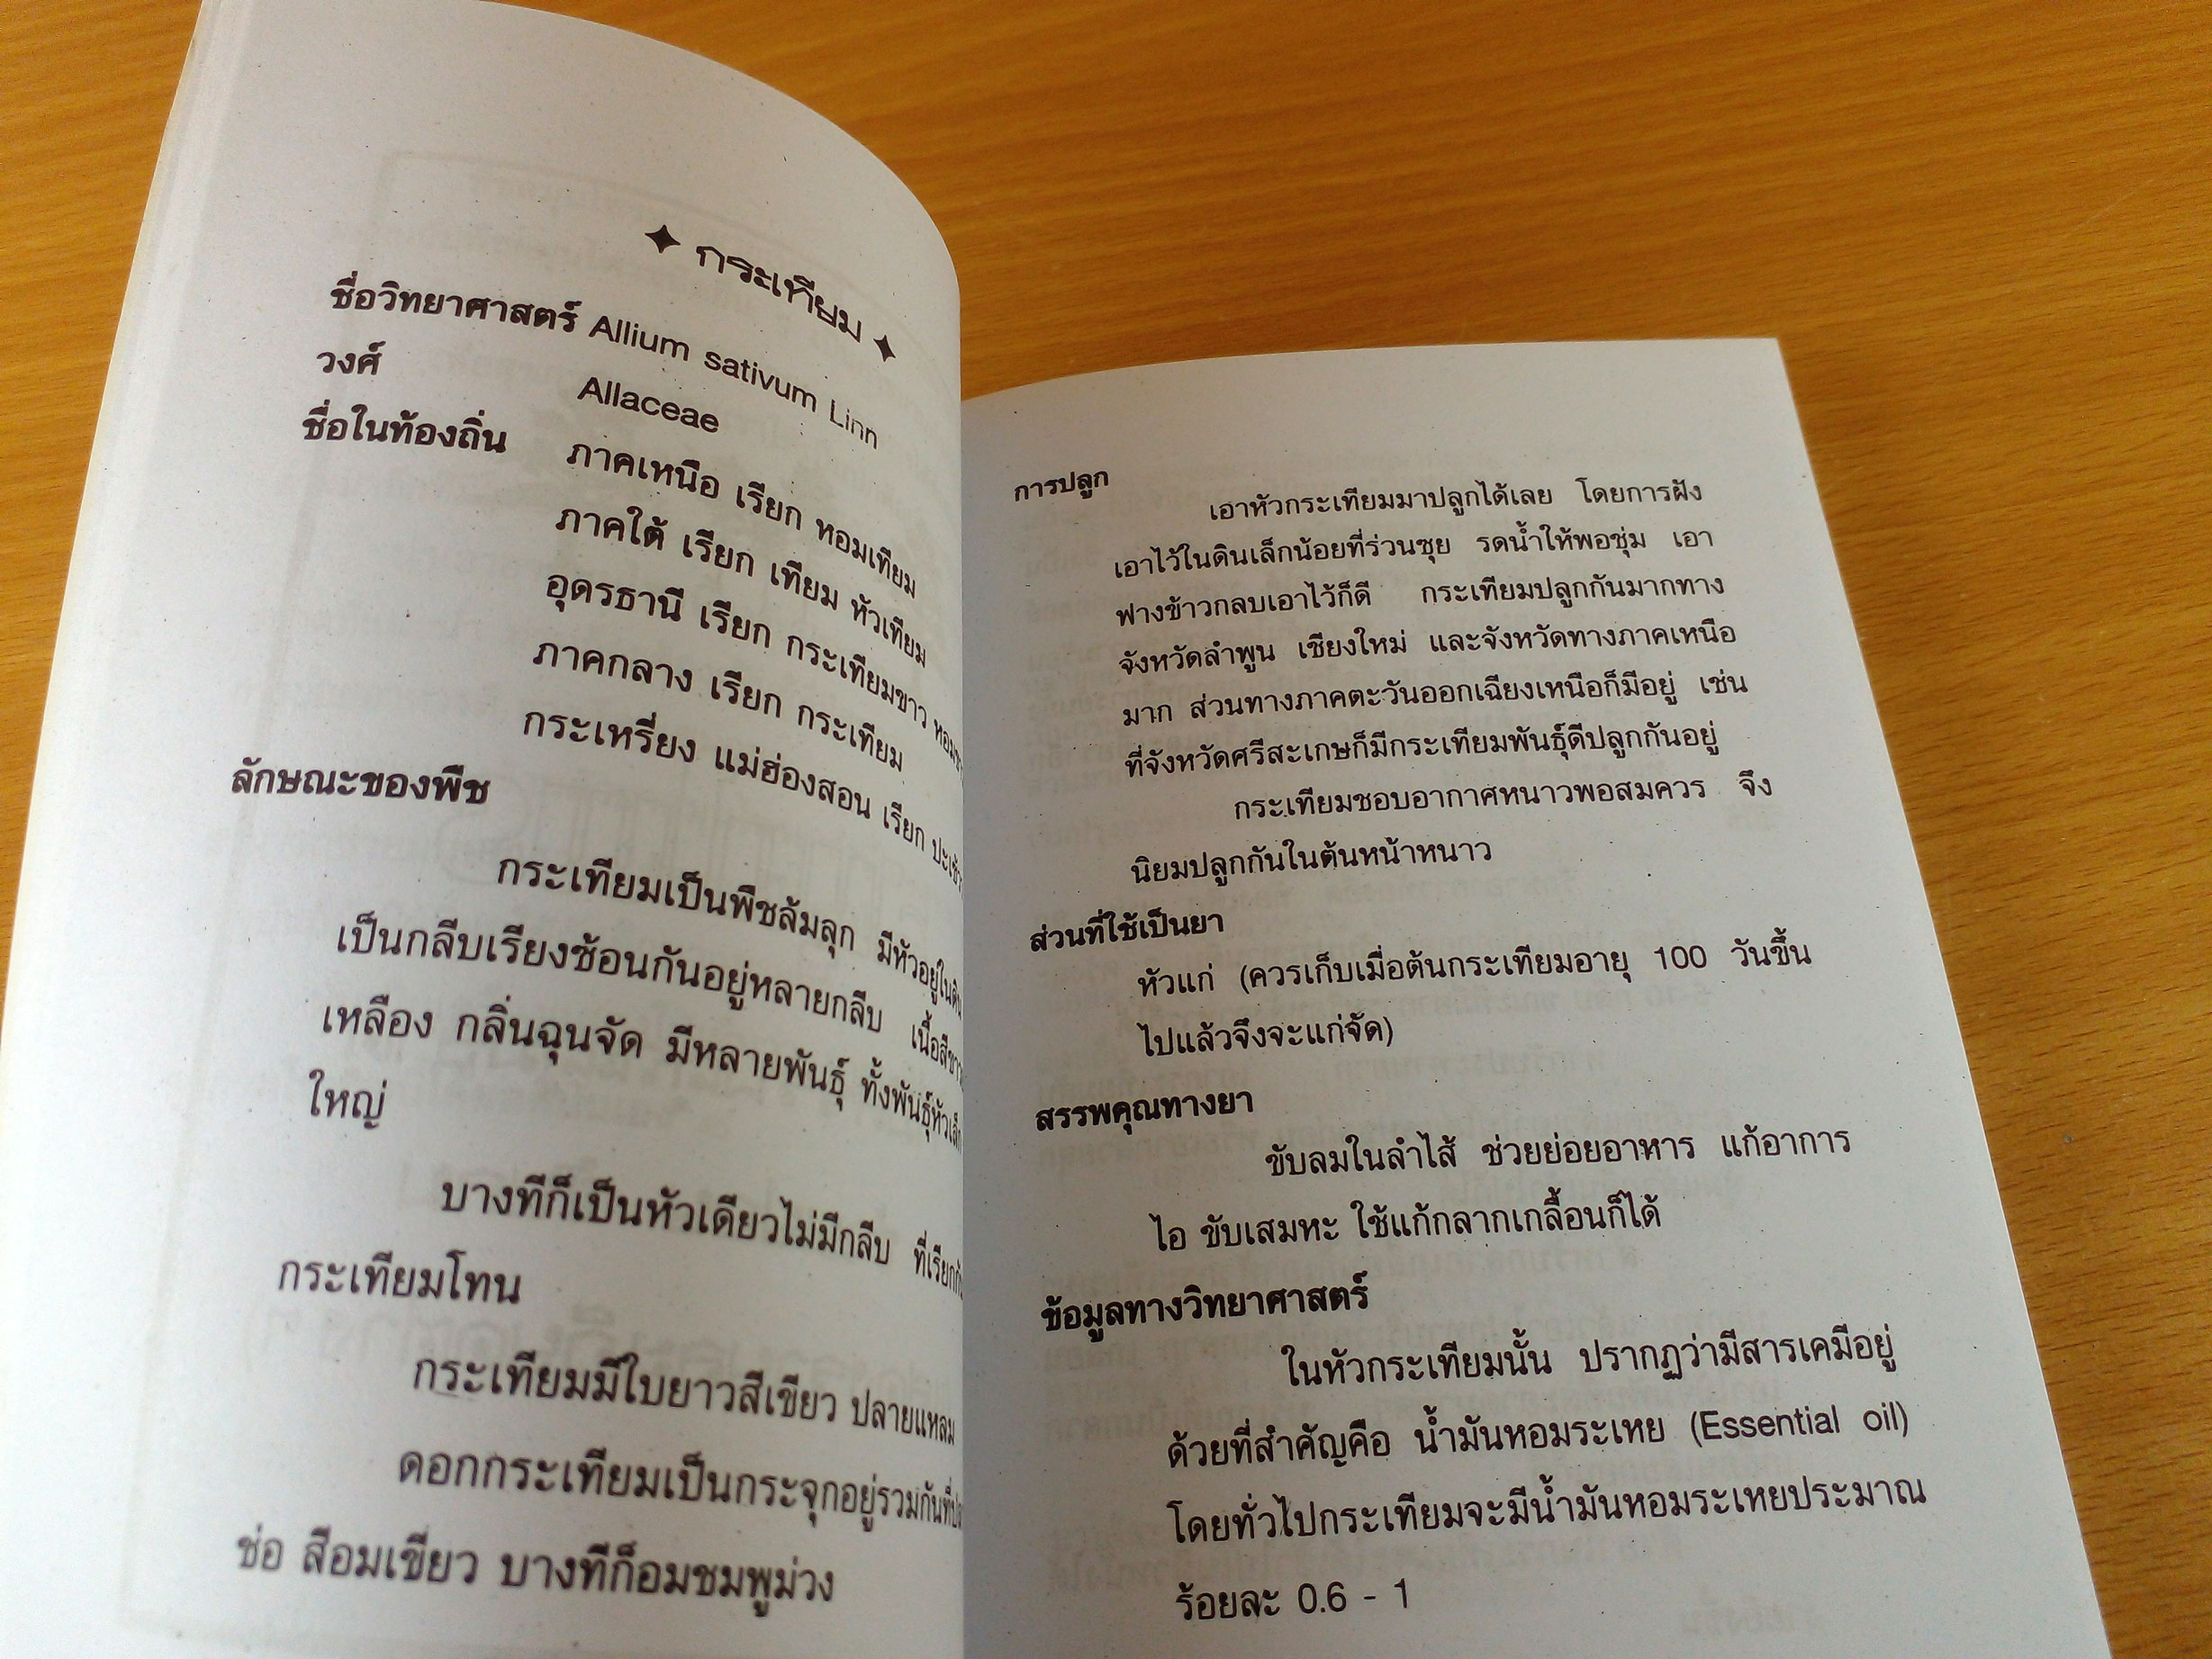 ✦ กระเทียม ✦
ชื่อวิทยาศาสตร์ Allium sativum Linn
วงศ์ Allaceae
ชื่อในท้องถิ่น ภาคเหนือ เรียก หอมเทียม
ภาคใต้ เรียก เทียม หัวเทียม
อุดรธานี เรียก กระเทียมขาว
ภาคกลาง เรียก กระเทียม
กระเหรี่ยง แม่ฮ่องสอน เรียก
ลักษณะของพืช
กระเทียมเป็นพืชล้มลุก มีหัวอยู่ในดิน
เป็นกลีบเรียงซ้อนกันอยู่หลายกลีบ เนื้อสีขาว
เหลือง กลิ่นฉุนจัด มีหลายพันธุ์ ทั้งพันธุ์หัวเล็ก
ใหญ่
บางทีก็เป็นหัวเดียวไม่มีกลีบ ที่เรียก
กระเทียมโทน
กระเทียมมีใบยาวสีเขียว ปลายแหลม
ดอกกระเทียมเป็นกระจุกอยู่รวมกันที่
ช่อ สีอมเขียว บางทีก็อมชมพูม่วง
การปลูก
เอาหัวกระเทียมมาปลูกได้เลย โดยการฝัง
เอาไว้ในดินเล็กน้อยที่ร่วนซุย รดน้ำให้พอชุ่ม เอา
ฟางข้าวกลบเอาไว้ก็ดี กระเทียมปลูกกันมากทาง
จังหวัดลำพูน เชียงใหม่ และจังหวัดทางภาคเหนือ
มาก ส่วนทางภาคตะวันออกเฉียงเหนือก็มีอยู่ เช่น
ที่จังหวัดศรีสะเกษก็มีกระเทียมพันธุ์ดีปลูกกันอยู่
กระเทียมชอบอากาศหนาวพอสมควร จึง
นิยมปลูกกันในต้นหน้าหนาว
ส่วนที่ใช้เป็นยา
หัวแก่ (ควรเก็บเมื่อต้นกระเทียมอายุ 100 วันขึ้น
ไปแล้วจึงจะแก่จัด)
สรรพคุณทางยา
ขับลมในลำไส้ ช่วยย่อยอาหาร แก้อาการ
ไอ ขับเสมหะ ใช้แก้กลากเกลื้อนก็ได้
ข้อมูลทางวิทยาศาสตร์
ในหัวกระเทียมนั้น ปรากฏว่ามีสารเคมีอยู่
ด้วยที่สำคัญคือ น้ำมันหอมระเหย (Essential oil)
โดยทั่วไปกระเทียมจะมีน้ำมันหอมระเหยประมาณ
ร้อยละ 0.6 - 1